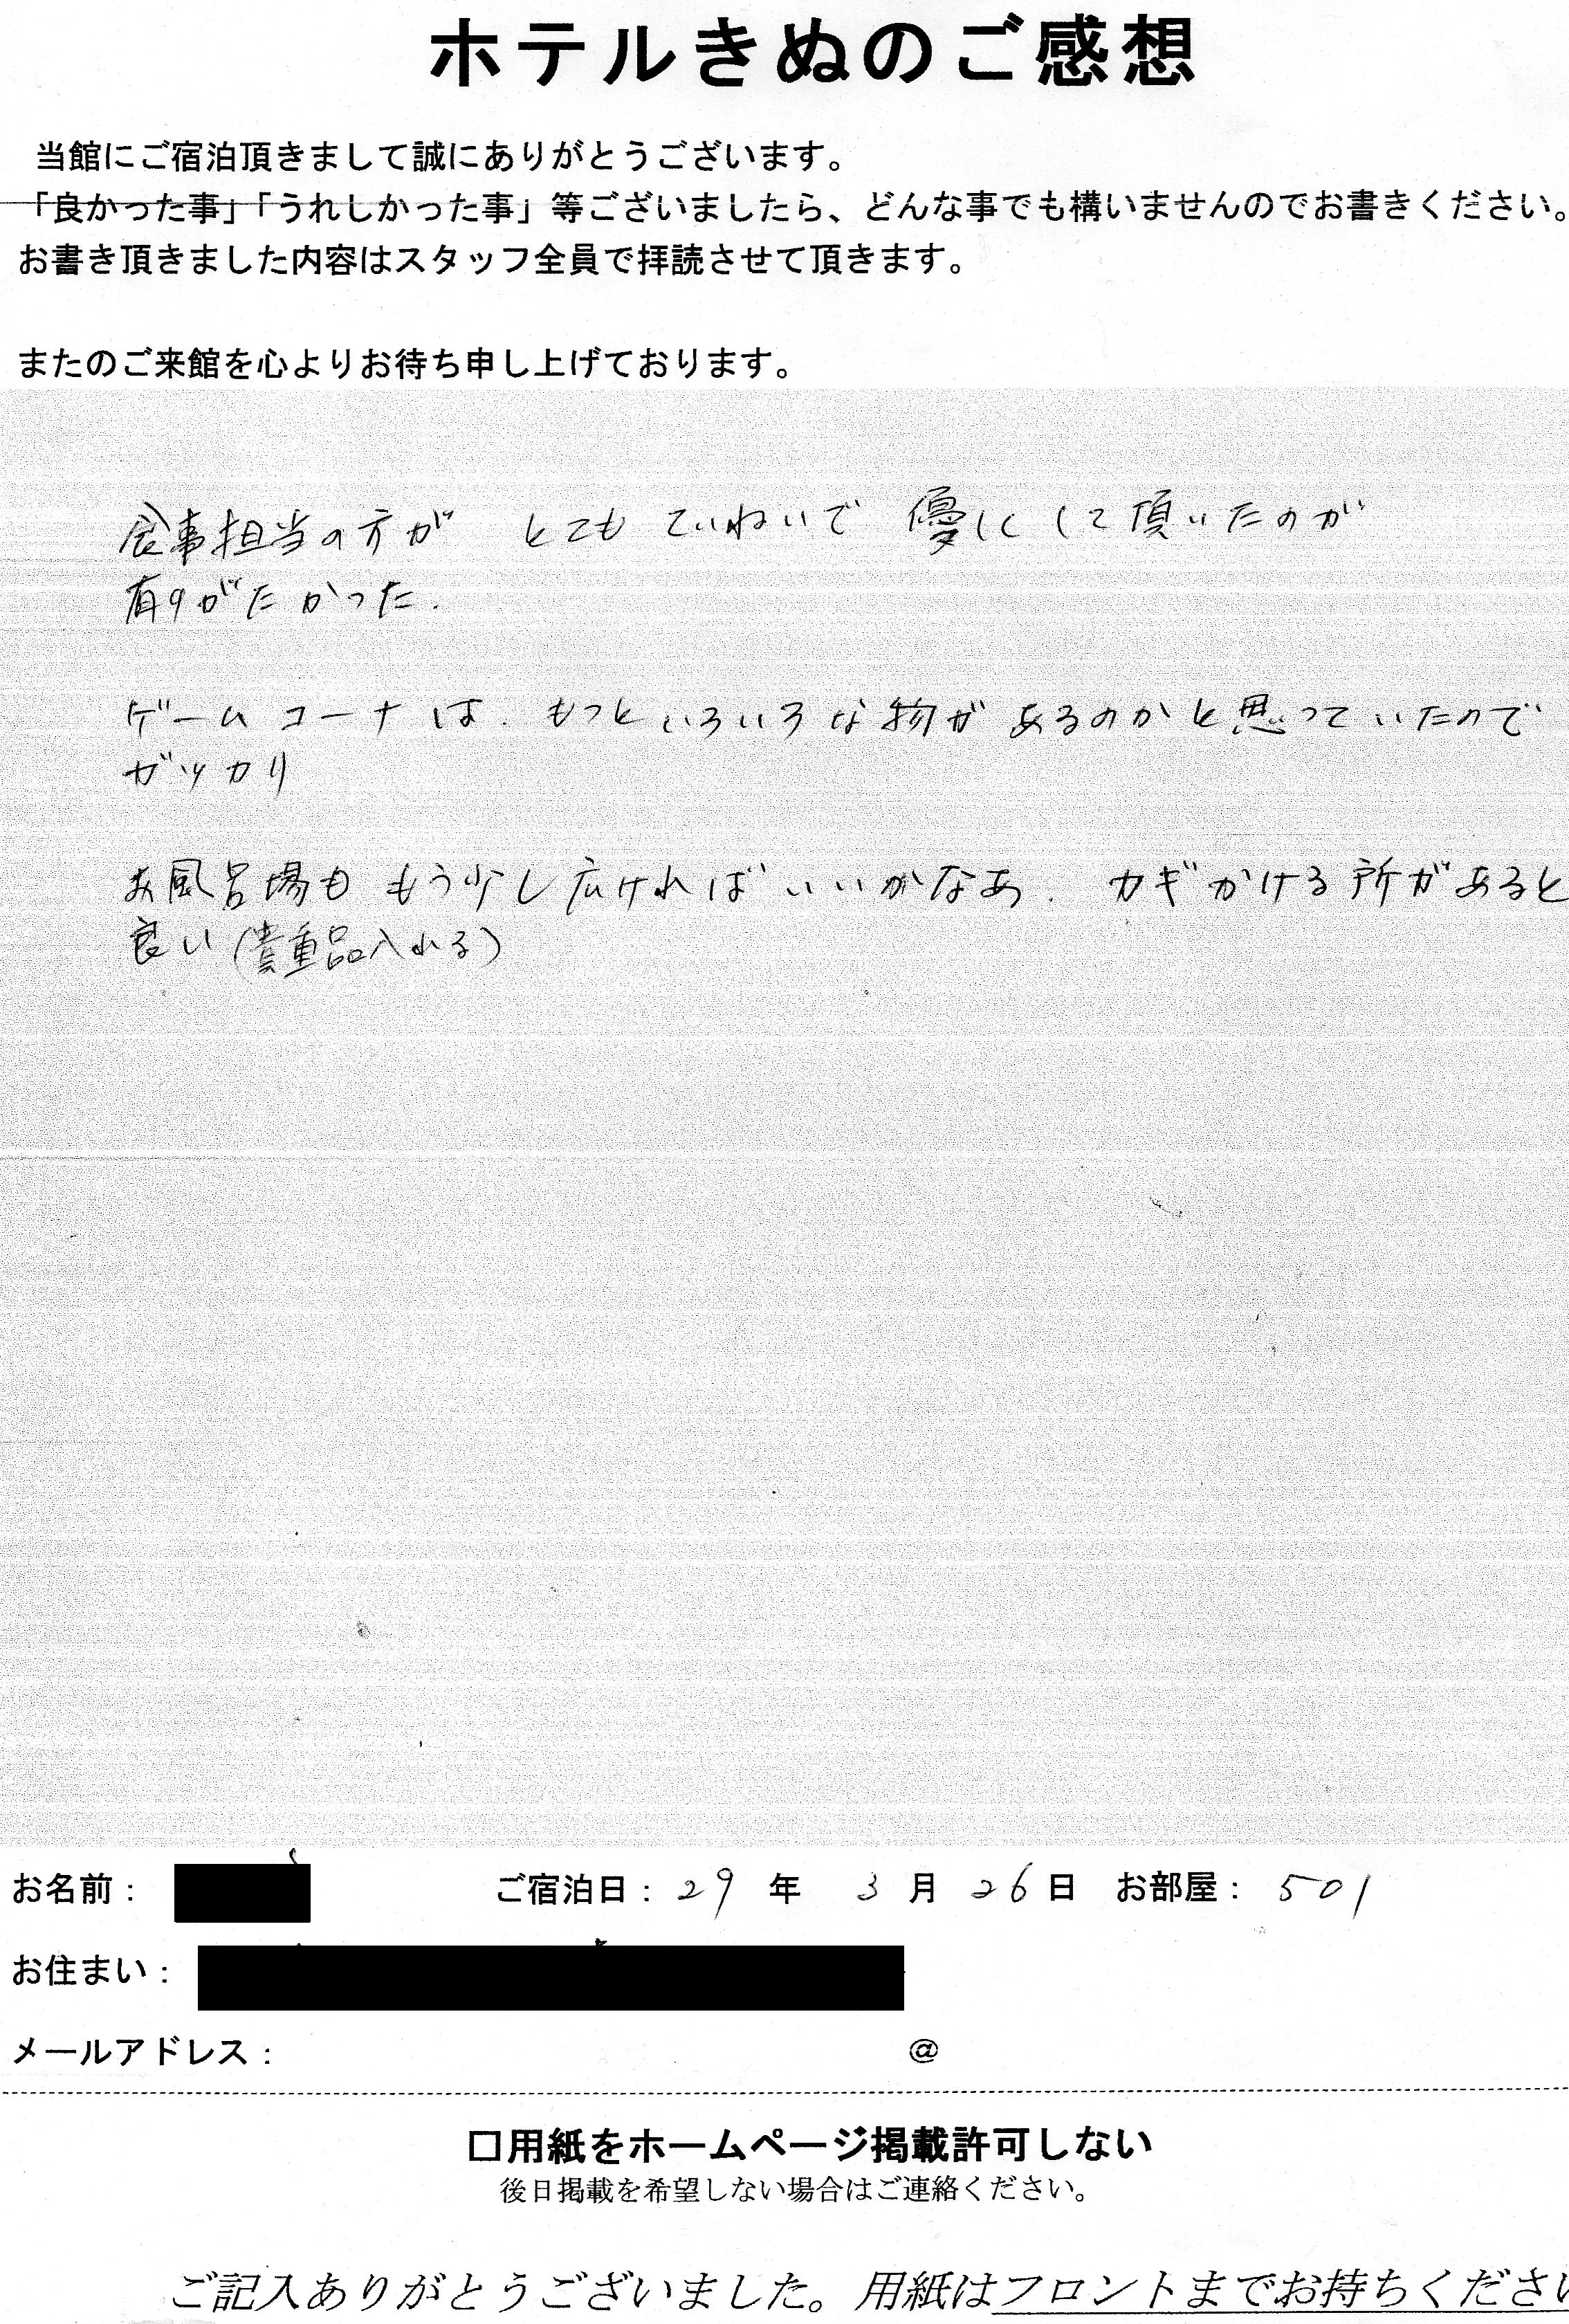 ホテルきぬのご感想
当館にご宿泊頂きまして誠にありがとうございます。
「良かった事」「うれしかった事」等ございましたら、どんな事でも構いませんのでお書きください。
お書き頂きました内容はスタッフ全員で拝読させて頂きます。
またのご来館を心よりお待ち申し上げております。
食事担当の方が とても ていねいで 優しくして頂いたのが
有りがたかった.
ゲームコーナは. もっといろいろな物があるのかと思っていたので
ガッカリ
お風呂場も もう少し広ければいいかなあ. カギかける所があると
良い(貴重品入れる)
お名前: ご宿泊日: 29 年 3 月 26 日 お部屋: 501
お住まい:
メールアドレス: @
□用紙をホームページ掲載許可しない
後日掲載を希望しない場合はご連絡ください。
ご記入ありがとうございました。用紙はフロントまでお持ちくださ